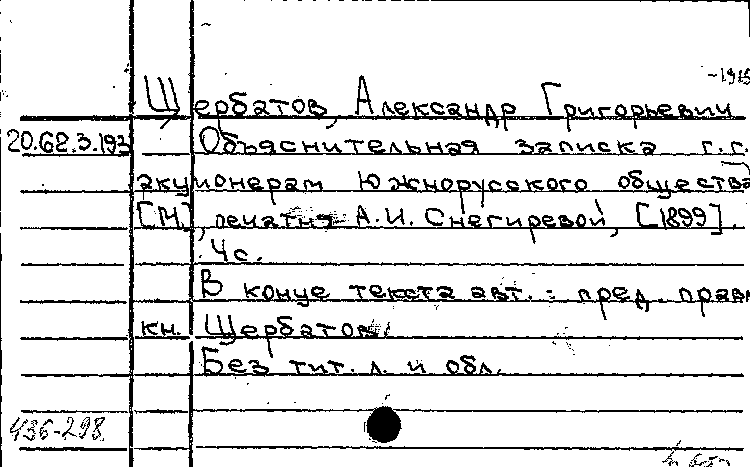 -1915
Щербатов, Александр Григорьевич
20.62.3.193 Объяснительная записка г.г.
акционерам Южнорусского общества
[М], печатня А.И. Снегиревой, [1899].
4с.
В конце текста авт.: пред. прав
кн. Щербатов.
Без тит. л. и обл.
436-298